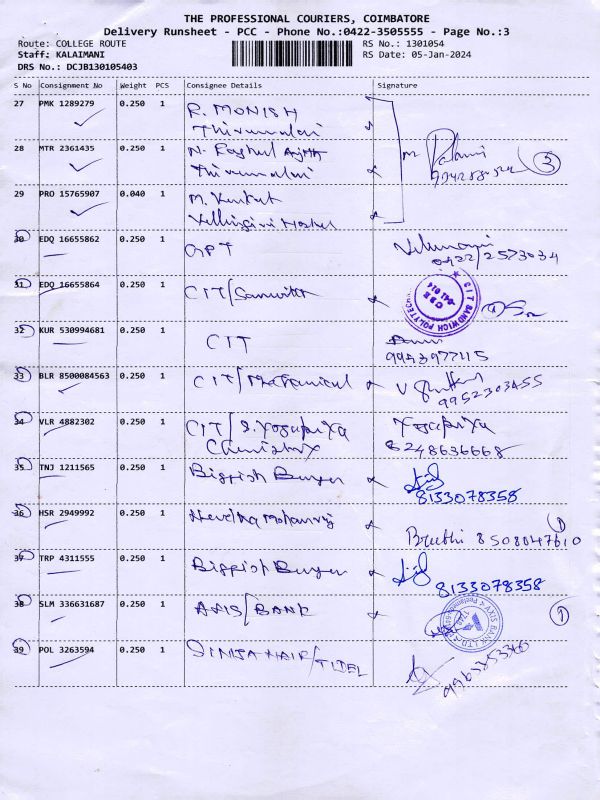 THE PROFESSIONAL COURIERS, COIMBATORE
Delivery Runsheet - PCC - Phone No.:0422-3505555 - Page No.:3
Route: COLLEGE ROUTE
Staff: KALAIMANI
DRS No.: DCJB130105403
RS No.: 1301054
RS Date: 05-Jan-2024
S No Consignment No Weight PCS Consignee Details Signature
27 PMK 1289279 0.250 1 R. MONISH
Thirumalai
28 MTR 2361435 0.250 1 N.
Thirumalai
3
29 PRO 15765907 0.040 1 M. Venkat
30 EDQ 16655862 0.250 1 GPT
0422/2573034
31 EDQ 16655864 0.250 1 CIT/Sandwich
CIT SANDWICH POLYTECHNIC
CBE
641 014
32 KUR 530994681 0.250 1 CIT
9943977115
33 BLR 8500084563 0.250 1 CIT/Mechanical
9952303455
34 VLR 4882302 0.250 1 CIT/S. Yogapriya Yogapriya
Chemistry 8248636668
35 TNJ 1211565 0.250 1 Biggish Burger
8133078358
36 HSR 2949992 0.250 1
1
8508047610
37 TRP 4311555 0.250 1 Biggish Burger
8133078358
38 SLM 336631687 0.250 1 AXIS/BANK
AXIS BANK LTD
1
39 POL 3263594 0.250 1